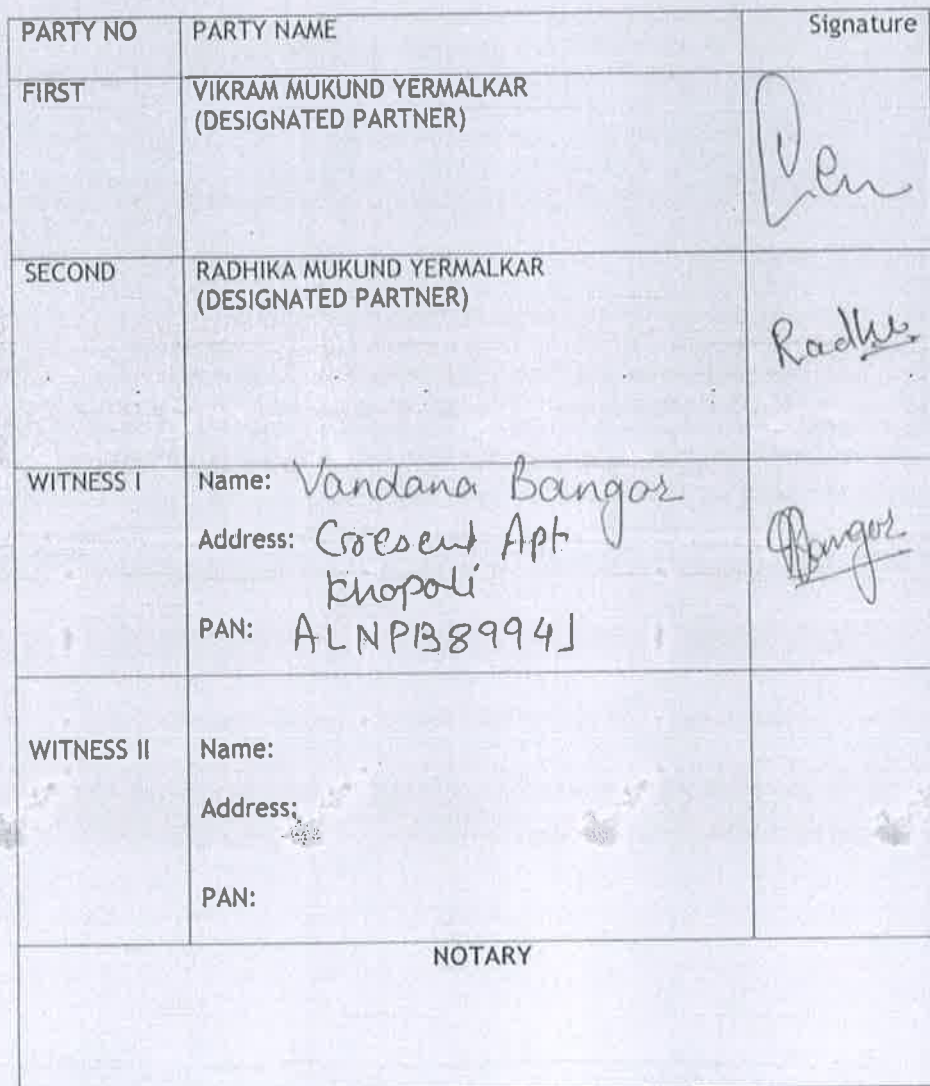 PARTY NO PARTY NAME Signature
FIRST VIKRAM MUKUND YERMALKAR
(DESIGNATED PARTNER)
SECOND RADHIKA MUKUND YERMALKAR
(DESIGNATED PARTNER)
Radhi
WITNESS I Name: Vandana Bangor
Address: Cresent Apt
Khopoli
Bangor
PAN: ALNPB8994J
WITNESS II Name:
Address:
PAN:
NOTARY